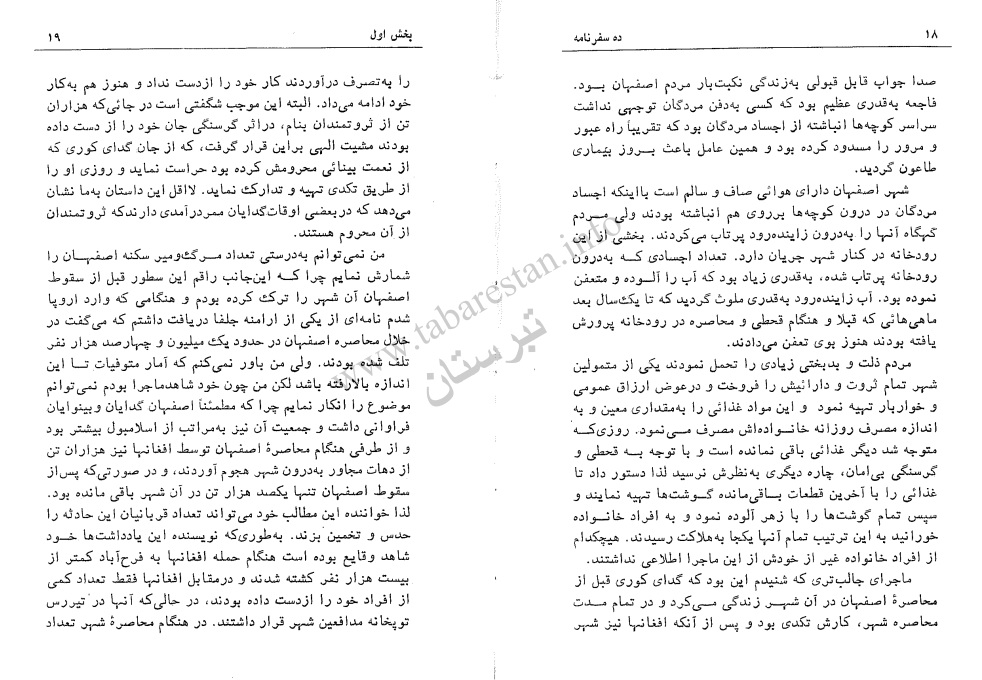 ۱۸
ده سفرنامه
صدا جواب قابل قبولی به‌زندگی نکبت‌بار مردم اصفهان بود.
فاجعه به‌قدری عظیم بود که کسی به‌دفن مردگان توجهی نداشت
سراسر کوچه‌ها انباشته از اجساد مردگان بود که تقریباً راه عبور
و مرور را مسدود کرده بود و همین عامل باعث بروز بیماری
طاعون گردید.
شهر اصفهان دارای هوائی صاف و سالم است بااینکه اجساد
مردگان در درون کوچه‌ها برروی هم انباشته بودند ولی مردم
گهگاه آنها را به‌درون زاینده‌رود پرتاب می‌کردند. بخشی از این
رودخانه در کنار شهر جریان دارد. تعداد اجسادی که به‌درون
رودخانه پرتاب شده، به‌قدری زیاد بود که آب را آلوده و متعفن
نموده بود. آب زاینده‌رود به‌قدری ملوث گردید که تا یک‌سال بعد
ماهی‌هائی که قبلا و هنگام قحطی و محاصره در رودخانه پرورش
یافته بودند هنوز بوی تعفن می‌دادند.
مردم ذلت و بدبختی زیادی را تحمل نمودند یکی از متمولین
شهر تمام ثروت و دارائیش را فروخت و درعوض ارزاق عمومی
و خواربار تهیه نمود و این مواد غذائی را به‌مقداری معین و به
اندازه مصرف روزانه خانواده‌اش مصرف می‌نمود. روزی‌که
متوجه شد دیگر غذائی باقی نمانده است و با توجه به قحطی و
گرسنگی بی‌امان، چاره دیگری به‌نظرش نرسید لذا دستور داد تا
غذائی را با آخرین قطعات باقی‌مانده گوشت‌ها تهیه نمایند و
سپس تمام گوشت‌ها را با زهر آلوده نمود و به افراد خانواده
خورانید به این ترتیب تمام آنها یکجا به‌هلاکت رسیدند. هیچکدام
از افراد خانواده غیر از خودش از این ماجرا اطلاعی نداشتند.
ماجرای جالب‌تری که شنیدم این بود که گدای کوری قبل از
محاصرهٔ اصفهان در آن شهر زندگی می‌کرد و در تمام مدت
محاصره شهر، کارش تکدی بود و پس از آنکه افغانها نیز شهر
بخش اول
۱۹
را به‌تصرف درآوردند کار خود را ازدست نداد و هنوز هم به‌کار
خود ادامه می‌داد. البته این موجب شگفتی است در جائی‌که هزاران
تن از ثروتمندان بنام، دراثر گرسنگی جان خود را از دست داده
بودند مشیت الهی براین قرار گرفت، که از جان گدای کوری که
از نعمت بینائی محرومش کرده بود حراست نماید و روزی او را
از طریق تکدی تهیه و تدارک نماید. لااقل این داستان به‌ما نشان
می‌دهد که دربعضی اوقات‌گدایان ممردرآمدی دارندکه ثروتمندان
از آن محروم هستند.
من نمی‌توانم به‌درستی تعداد مرگ‌ومیر سکنه اصفهان را
شمارش نمایم چرا که این‌جانب راقم این سطور قبل از سقوط
اصفهان آن شهر را ترک کرده بودم و هنگامی که وارد اروپا
شدم نامه‌ای از یکی از ارامنه جلفا دریافت داشتم که می‌گفت در
خلال محاصره اصفهان در حدود یک میلیون و چهارصد هزار نفر
تلف شده بودند. ولی من باور نمی‌کنم که آمار متوفیات تا این
اندازه بالارفته باشد لکن من چون خود شاهدماجرا بودم نمی‌توانم
موضوع را انکار نمایم چرا که مطمئناً اصفهان گدایان وبینوایان
فراوانی داشت و جمعیت آن نیز به‌مراتب از اسلامبول بیشتر بود
و از طرفی هنگام محاصرهٔ اصفهان توسط افغانها نیز هزاران تن
از دهات مجاور به‌درون شهر هجوم آوردند، و در صورتی‌که پس‌از
سقوط اصفهان تنها یکصد هزار تن در آن شهر باقی مانده بود.
لذا خواننده این مطالب خود می‌تواند تعداد قربانیان این حادثه را
حدس و تخمین بزند. به‌طوری‌که نویسنده این یادداشت‌ها خود
شاهد وقایع بوده است هنگام حمله افغانها به فرح‌آباد کمتر از
بیست هزار نفر کشته شدند و درمقابل افغانها فقط تعداد کمی
از افراد خود را ازدست داده بودند، در حالی‌که آنها در تیررس
توپخانه مدافعین شهر قرار داشتند. در هنگام محاصرهٔ شهر تعداد
www.tabarestan.info
تبرستان